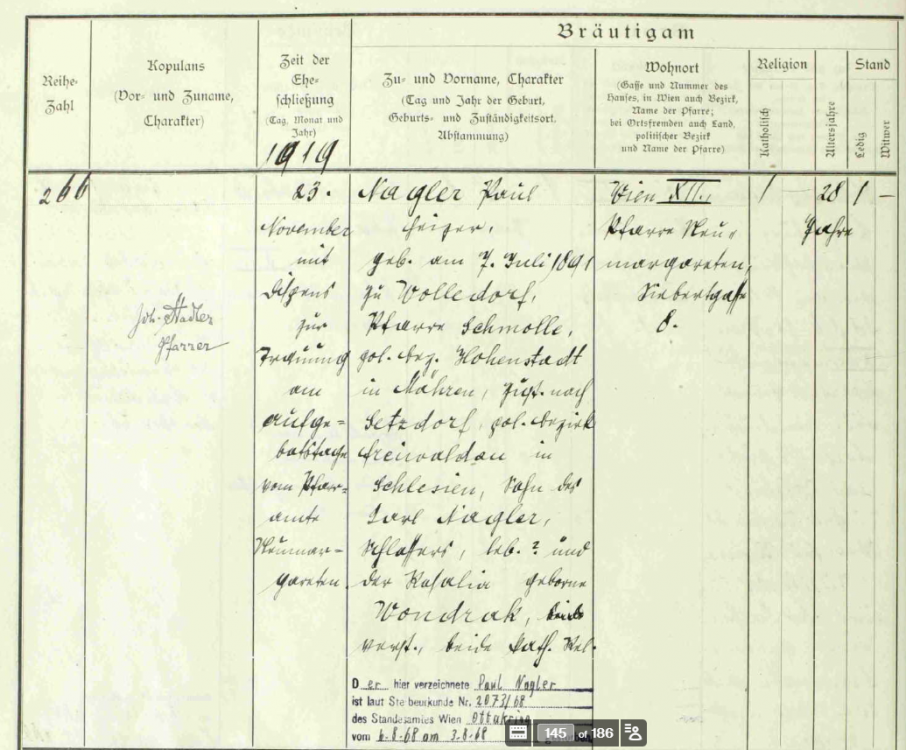 Bräutigam
Reihe-
Zahl
Kopulans
(Vor- und Zuname,
Charakter)
Zeit der
Ehe-
schließung
(Tag, Monat und
Jahr)
1919
Zu- und Vorname, Charakter
(Tag und Jahr der Geburt,
Geburts- und Zuständigkeitsort,
Abstammung)
Wohnort
(Gasse und Nummer des
Hauses, in Wien auch Bezirk,
Name der Pfarre;
bei Ortsfremden auch Land,
politischer Bezirk
und Name der Pfarre)
Religion
Katholisch
Altersjahre
Stand
Ledig
Witwer
266
Joh. Stadler
Pfarrer
23.
November
mit
Dispens
zur
Trauung
am
Aufge-
botstage
vom Pfar-
amte
Neumar-
gareten.
Nagler Paul
Heizer,
geb. am 7. Juli 1891
zu Wolledorf,
Pfarre Schmolle,
pol. bez. Hohenstadt
in Mähren, zust. nach
Setzdorf, pol. bezirk
Freiwaldau in
Schlesien, Sohn des
Karl Nagler,
Schlossers, leb. ? und
der Rosalia geborne
Wondrak,
verst., beide kath. Rel.
Wien XII.,
Pfarre Neu-
margareten,
Siebertgasse
8.
1
28
Jahre
1
–
Der hier verzeichnete Paul Nagler
ist laut Sterbeurkunde Nr. 2073/68
des Standesamtes Wien Ottakring
vom 6.8.68 am 3.8.68
145 of 186